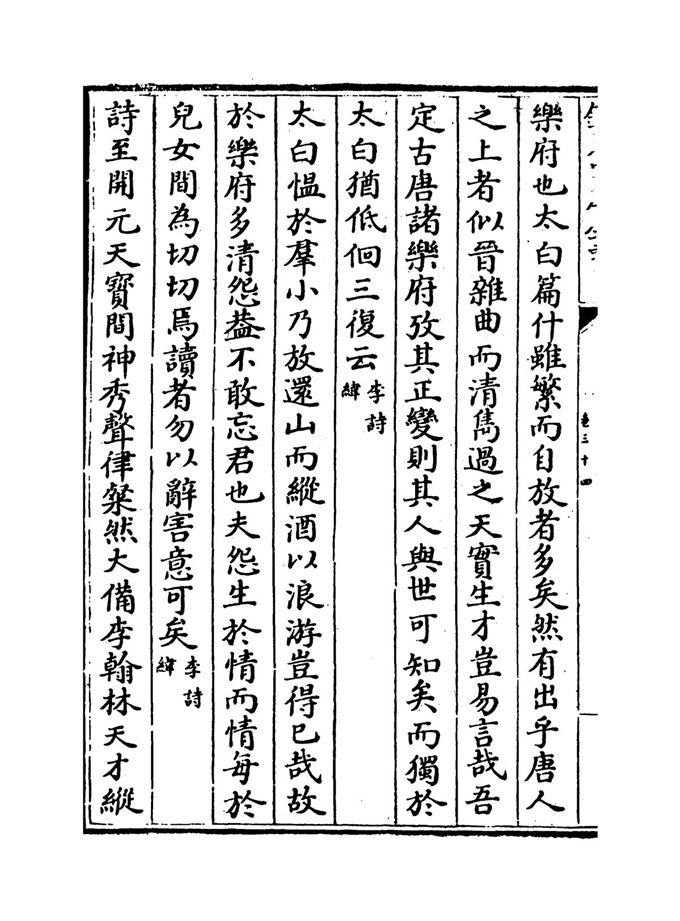 樂府也太白篇什雖繁而自放者多矣然有出乎唐人
之上者似晉雜曲而清雋過之天實生才豈易言哉吾
定古唐諸樂府攷其正變則其人與世可知矣而獨於
太白猶低佪三復云李詩緯
太白愠於羣小乃放還山而縱酒以浪游豈得已哉故
於樂府多清怨葢不敢忘君也夫怨生於情而情每於
兒女間為切切焉讀者勿以辭害意可矣李詩緯
詩至開元天寶間神秀聲律粲然大備李翰林天才縱
卷三十四